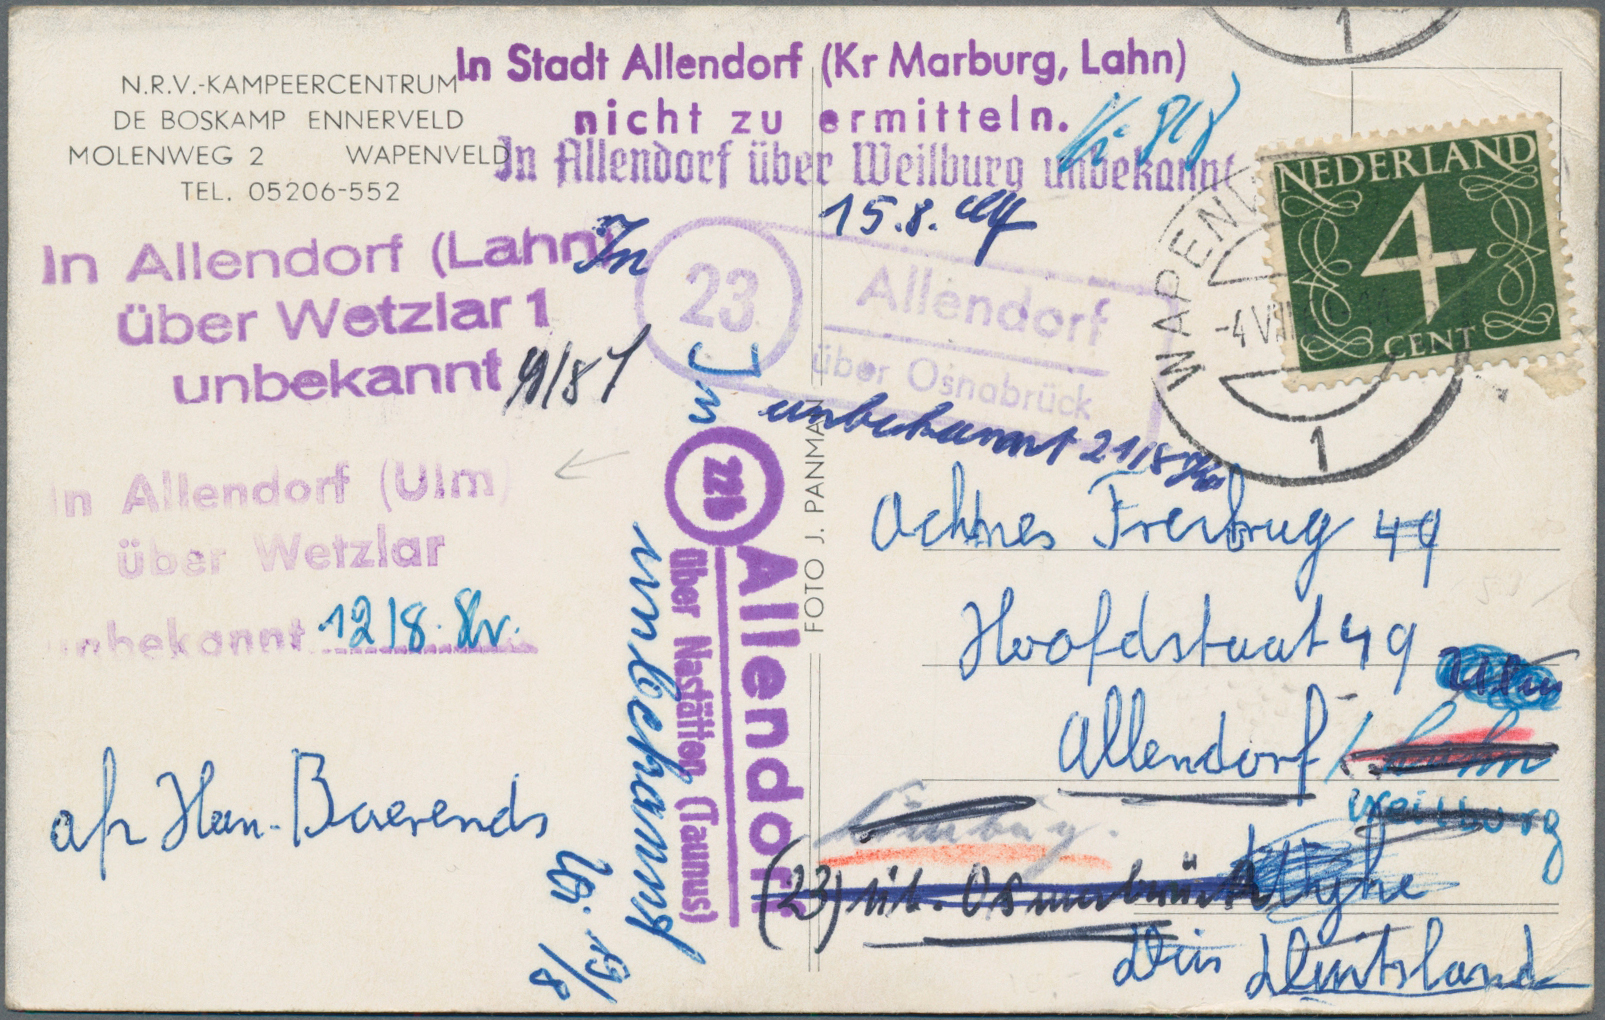 N.R.V.-KAMPEERCENTRUM
DE BOSKAMP ENNERVELD
MOLENWEG 2 WAPENVELD
TEL. 05206-552
In Stadt Allendorf (Kr Marburg, Lahn)
nicht zu ermitteln.
In Allendorf über Weilburg unbekannt
15.8.
NEDERLAND
4
CENT
WAPENV
-4 VII
1
1
In Allendorf (Lahn)
über Wetzlar 1
unbekannt
In
23
Allendorf
über Osnabrück
unbekannt 21/8
In Allendorf (Ulm)
über Wetzlar
unbekannt 12/8.
In
22b
Allendorf
über Nastätten (Taunus)
unbekannt
19/8
FOTO J. PANMAN
Achnes Freibrug 49
Hoofdstaat 49
Allendorf
Ulm
Lahn
Weilburg
(23) üb. Osnabrück
Duitsland
afz Han. Baerends